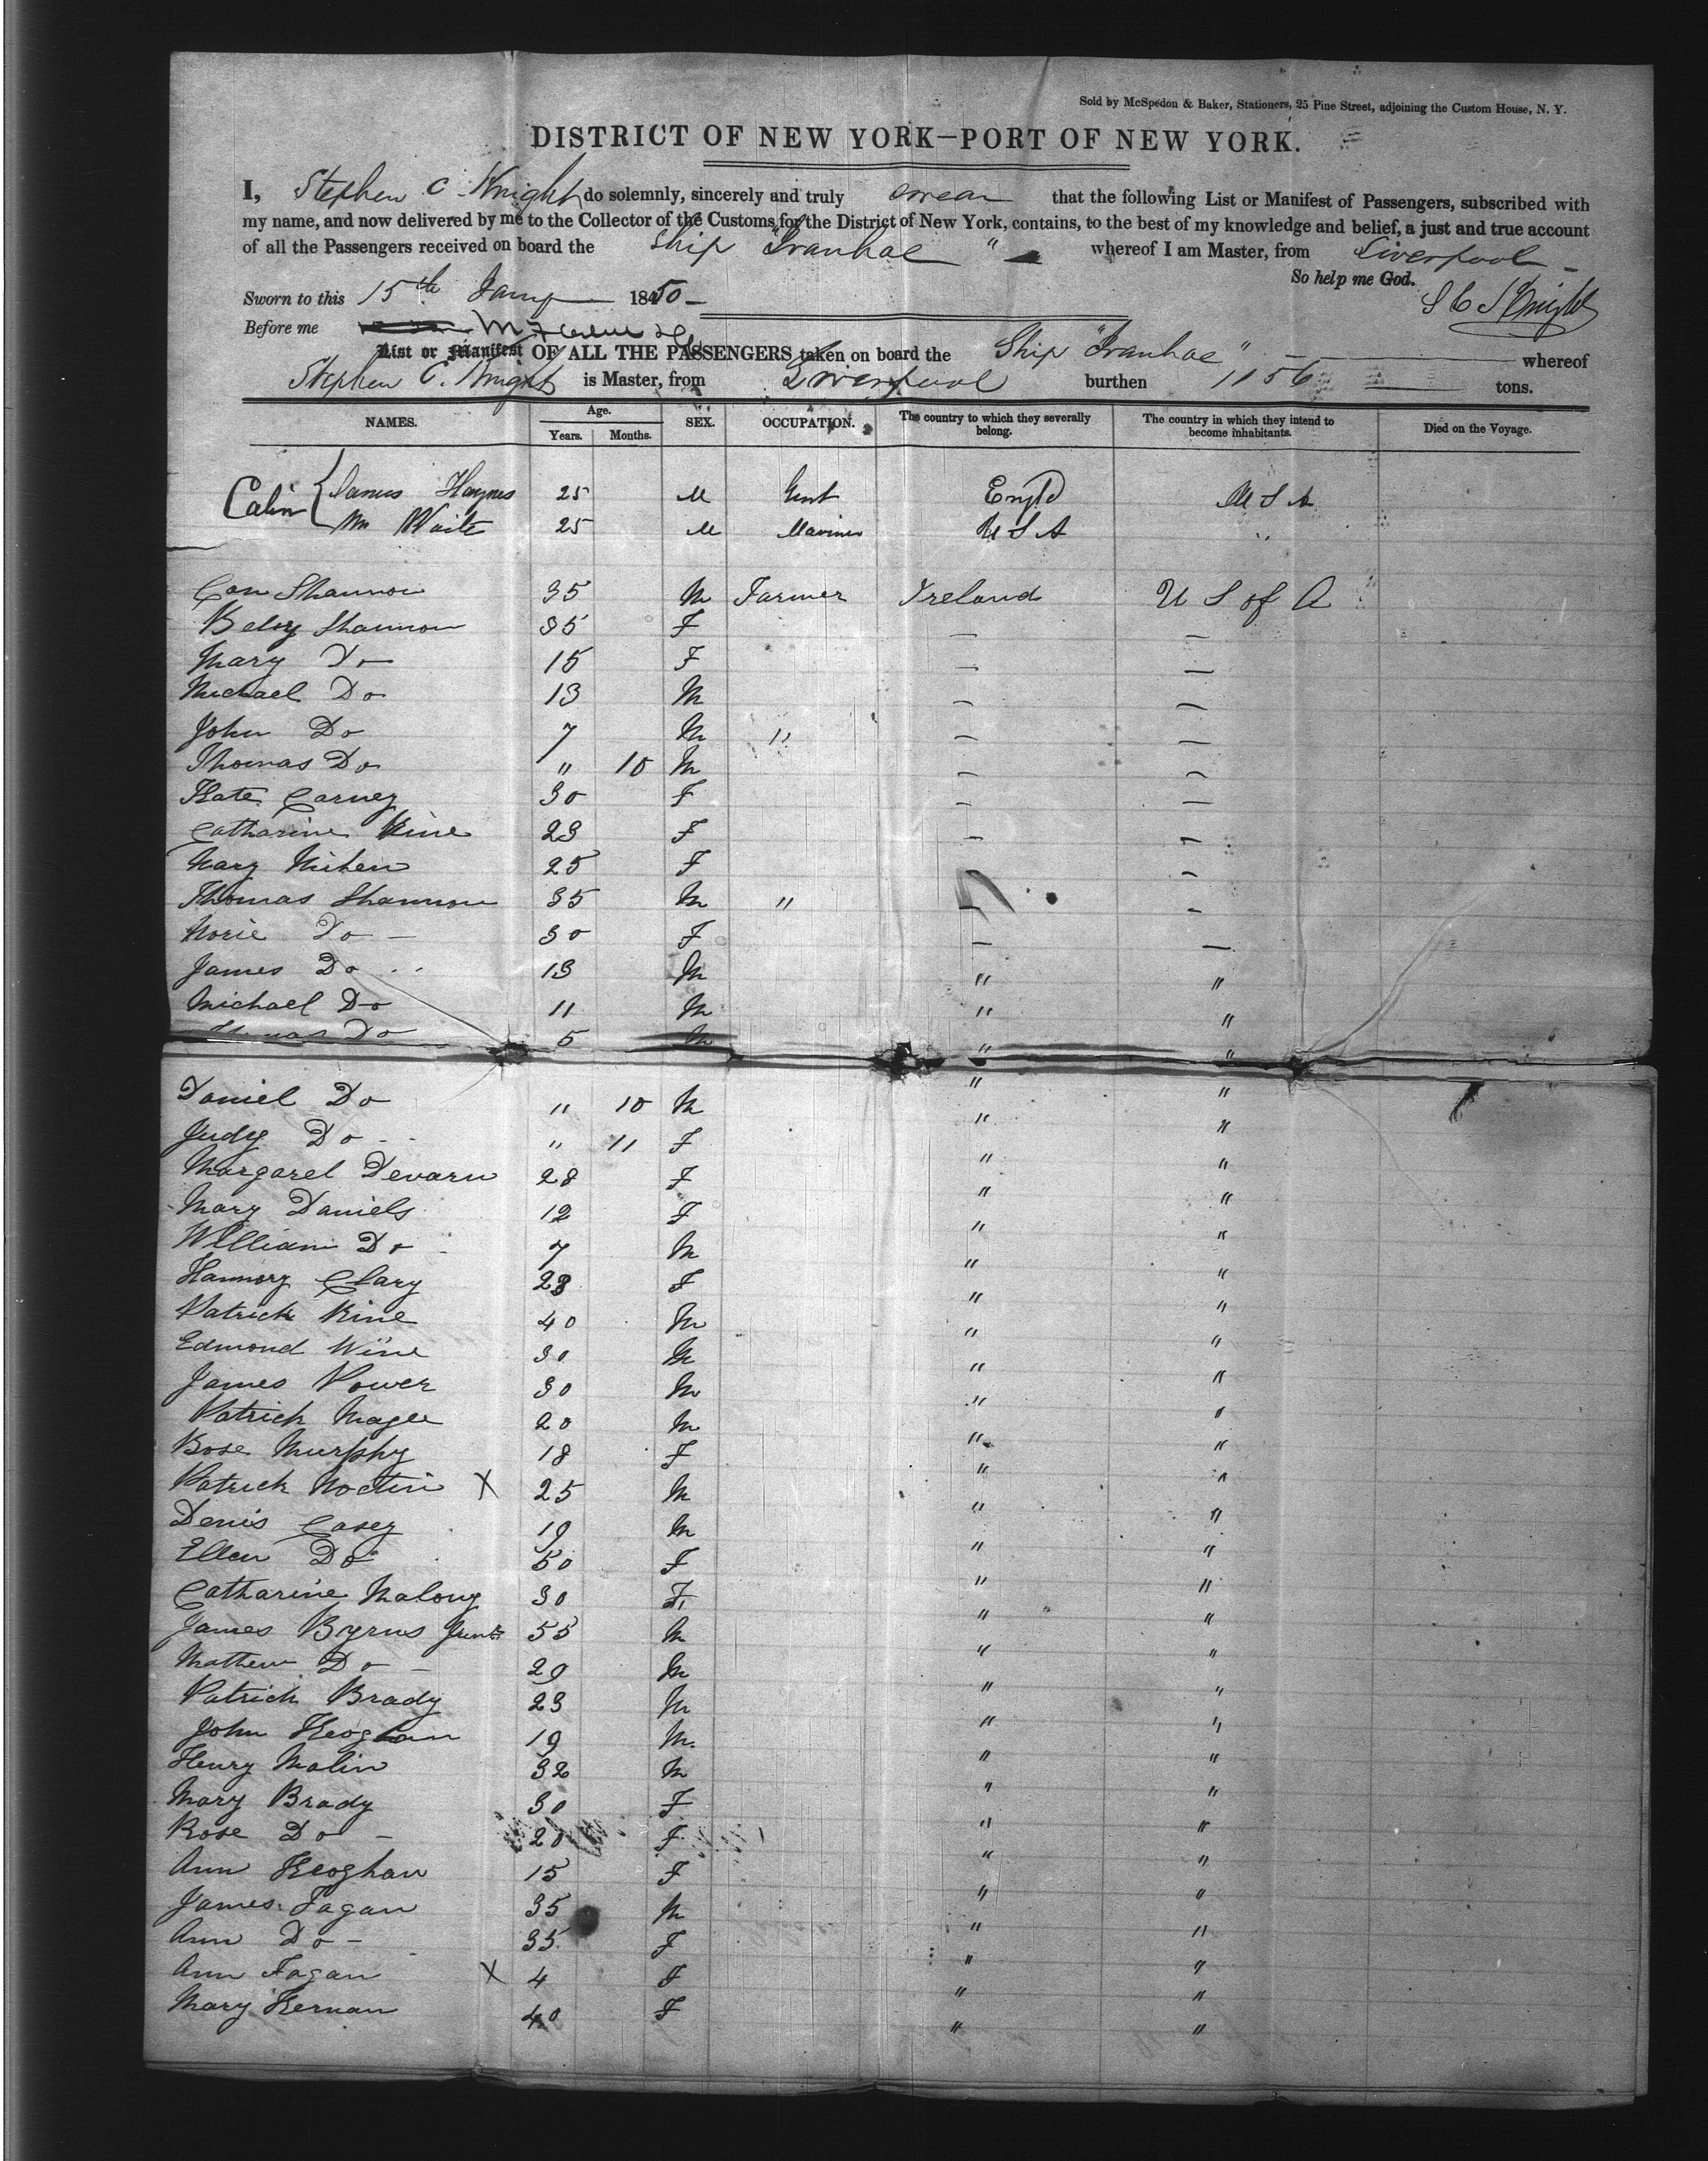 Sold by McSpedon & Baker, Stationers, 25 Pine Street, adjoining the Custom House, N. Y.
DISTRICT OF NEW YORK—PORT OF NEW YORK.
I, Stephen C Knight do solemnly, sincerely and truly swear that the following List or Manifest of Passengers, subscribed with
my name, and now delivered by me to the Collector of the Customs for the District of New York, contains, to the best of my knowledge and belief, a just and true account
of all the Passengers received on board the Ship "Ivanhoe" whereof I am Master, from Liverpool
So help me God.
Sworn to this 15th Jany 1850 S C Knight
Before me
List or Manifest OF ALL THE PASSENGERS taken on board the Ship "Ivanhoe" whereof
Stephen C. Knight is Master, from Liverpool burthen 1156 tons.
NAMES. Age. Years. Months. SEX. OCCUPATION. The country to which they severally belong. The country in which they intend to become inhabitants. Died on the Voyage.
Cabin { James Haynes 25 M Gent Engld U S A
Wm Waite 25 M Mariner U S A "
Con Shannon 35 M Farmer Ireland U S of A
Betsy Shannon 35 F — —
Mary Do 15 F — —
Michael Do 13 M — —
John Do 7 M " — —
Thomas Do " 10 M — —
Kate Carney 30 F — —
Catharine Kine 23 F — —
Mary 25 F —
Thomas Shannon 35 M " — —
Norie Do — 30 F — —
James Do 13 M " "
Michael Do 11 M " "
Thomas Do 5 M " "
Daniel Do " 10 M " "
Judy Do " 11 F " "
Margaret Devarn 28 F " "
Mary Daniels 12 F " "
William Do 7 M " "
Hannory Clary 28 F " "
Patrick Kine 40 M " "
Edmond Wine 30 M " "
James Power 30 M " "
Patrick Magee 20 M " "
Rose Murphy 18 F " "
Patrick Noctin X 25 M " "
Denis Casey 19 M " "
Ellen Do 50 F " "
Catharine Malony 30 F " "
James Byrns 55 M " "
Mathew Do — 29 M " "
Patrick Brady 23 M " "
John Keoghan 19 M. " "
Henry Malin 32 M " "
Mary Brady 30 F " "
Rose Do — 20 F " "
Ann Keoghan 15 F " "
James Fagan 35 M " "
Ann Do — 35 F " "
Ann Fagan X 4 F " "
Mary Kernan 40 F " "